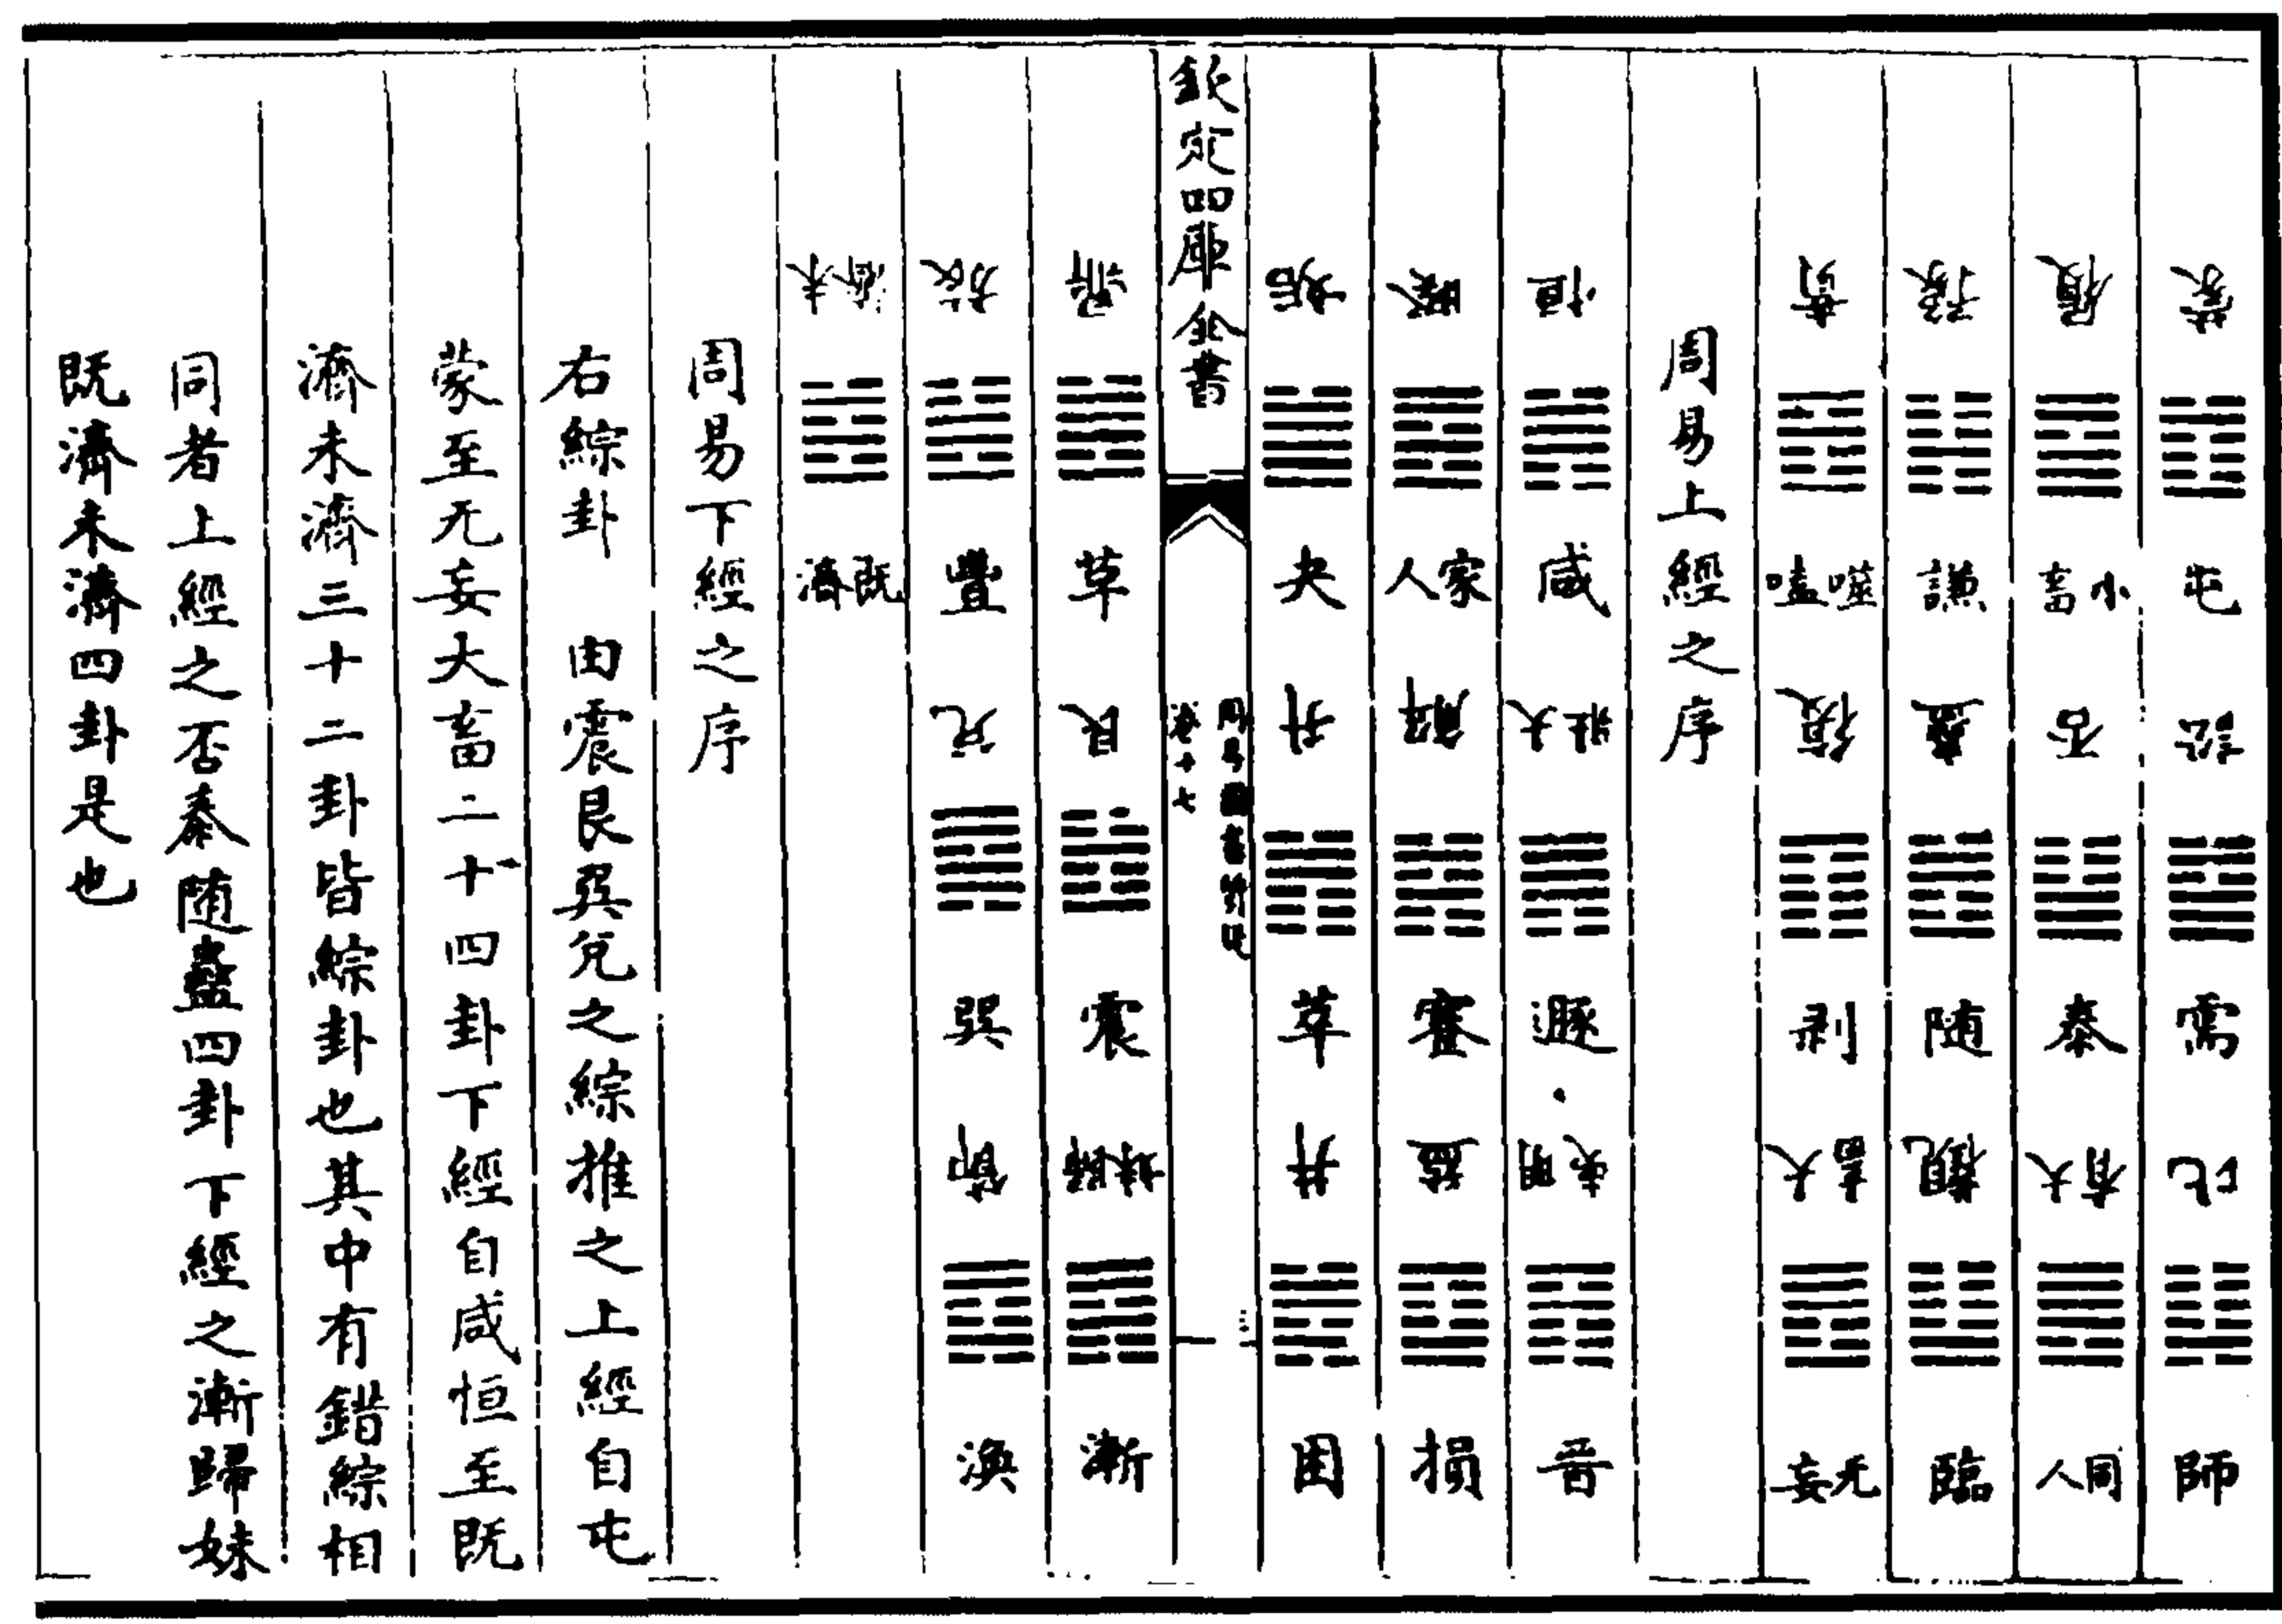 蒙 屯 訟 需 比 師
履 小畜 否 泰 大有 同人
豫 謙 蠱 随 觀 臨
賁 噬嗑 復 剥 大畜 无妄
周易上經之序
恒 咸 大壯 遯 明夷 晉
睽 家人 解 蹇 益 損
姤 夬 升 萃 井 困
欽定四庫全書
周易圖書質疑
卷十七
鼎 革 艮 震 歸妹 漸
旅 豐 兌 巽 節 渙
未濟 既濟
周易下經之序
右綜卦 由震艮巽兌之綜推之上經自屯
蒙至无妄大畜二十四卦下經自咸恒至既
濟未濟三十二卦皆綜卦也其中有錯綜相
同者上經之否泰随蠱四卦下經之漸歸妹
既濟未濟四卦是也